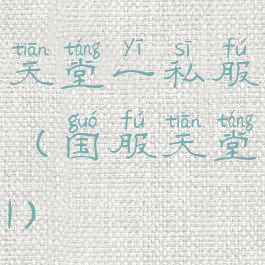 tiān táng yī sī fú
天堂一私服
guó fú tiān táng
(国服天堂
1)